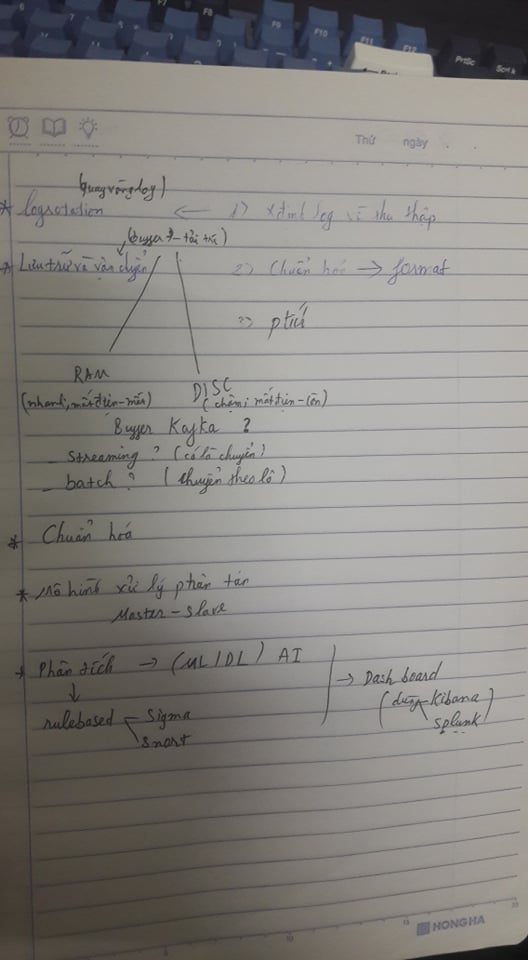 F7 F8 F9 F10 F11 F12 PrtSc
Thứ ngày
(quay vòng log)
* logrotation ← 1) xđịnh log và thu thập
(buffer - tải tr)
* Lưu trữ và vận chuyển 2) Chuẩn hoá → format
3) ptích
RAM DISC
(nhanh, mất điện - mất) (chậm, mất điện - còn)
Buffer Kafka ?
- Streaming ? (có là chuyển)
- batch ? (chuyển theo lô)
* Chuẩn hoá
* Mô hình xử lý phân tán
Master - slave
* Phân tích → (ML/DL) AI → Dashboard
↓ (dùng Kibana
rulebased Sigma Splunk)
Snort
HONG HA